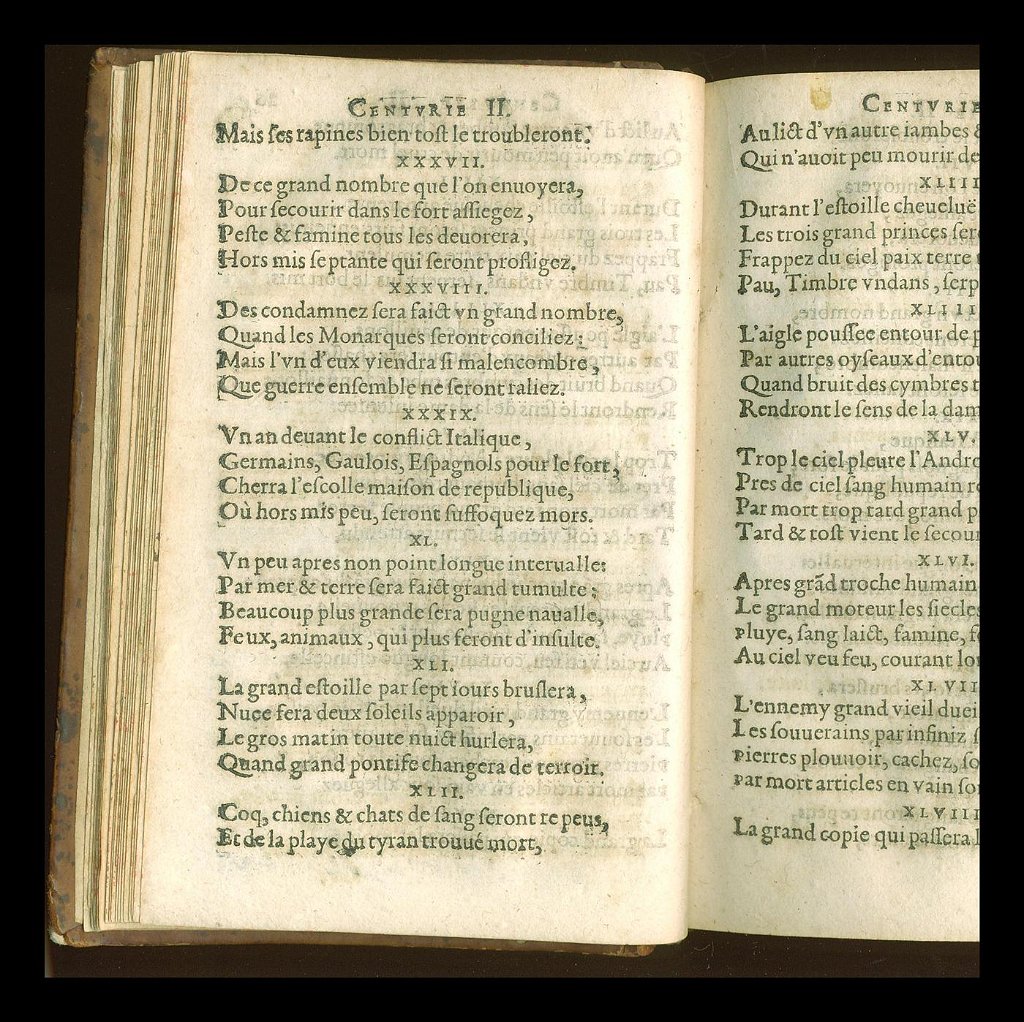 CENTVRIE II.
Mais ſes rapines bien toſt le troubleront.
XXXVII.
De ce grand nombre que l'on enuoyera,
Pour ſecourir dans le fort aſſiegez,
Peſte & famine tous les deuorera,
Hors mis ſeptante qui ſeront profligez.
XXXVIII.
Des condamnez ſera faict vn grand nombre,
Quand les Monarques ſeront conciliez:
Mais l'vn d'eux viendra ſi malencombre,
Que guerre enſemble ne ſeront raliez.
XXXIX.
Vn an deuant le conflict Italique,
Germains, Gaulois, Eſpagnols pour le fort,
Cherra l'eſcolle maiſon de republique,
Où hors mis peu, ſeront ſuffoquez mors.
XL.
Vn peu apres non point longue interualle:
Par mer & terre ſera faict grand tumulte:
Beaucoup plus grande ſera pugne naualle,
Feux, animaux, qui plus feront d'inſulte.
XLI.
La grand eſtoille par ſept iours bruſlera,
Nuee fera deux ſoleils apparoir,
Le gros matin toute nuict hurlera,
Quand grand pontife changera de terroir.
XLII.
Coq, chiens & chats de ſang ſeront repeus,
Et de la playe du tyran trouué mort,
CENTVRIE
Au lict d'vn autre iambes &
Qui n'auoit peu mourir de
XLIII
Durant l'eſtoille cheueluë
Les trois grand princes ſer
Frappez du ciel paix terre
Pau, Timbre vndans, ſerp
XLIIII
L'aigle pouſſee entour de p
Par autres oyſeaux d'entou
Quand bruit des cymbres t
Rendront le ſens de la dam
XLV.
Trop le ciel pleure l'Andro
Pres de ciel ſang humain r
Par mort trop tard grand p
Tard & toſt vient le ſecou
XLVI.
Apres grãd troche humain
Le grand moteur les ſiecles
pluye, ſang laict, famine, f
Au ciel veu feu, courant lo
XLVII
L'ennemy grand vieil dueil
Les ſouuerains par infiniz ſ
pierres plouuoir, cachez, ſo
par mort articles en vain ſo
XLVIII
La grand copie qui paſſera